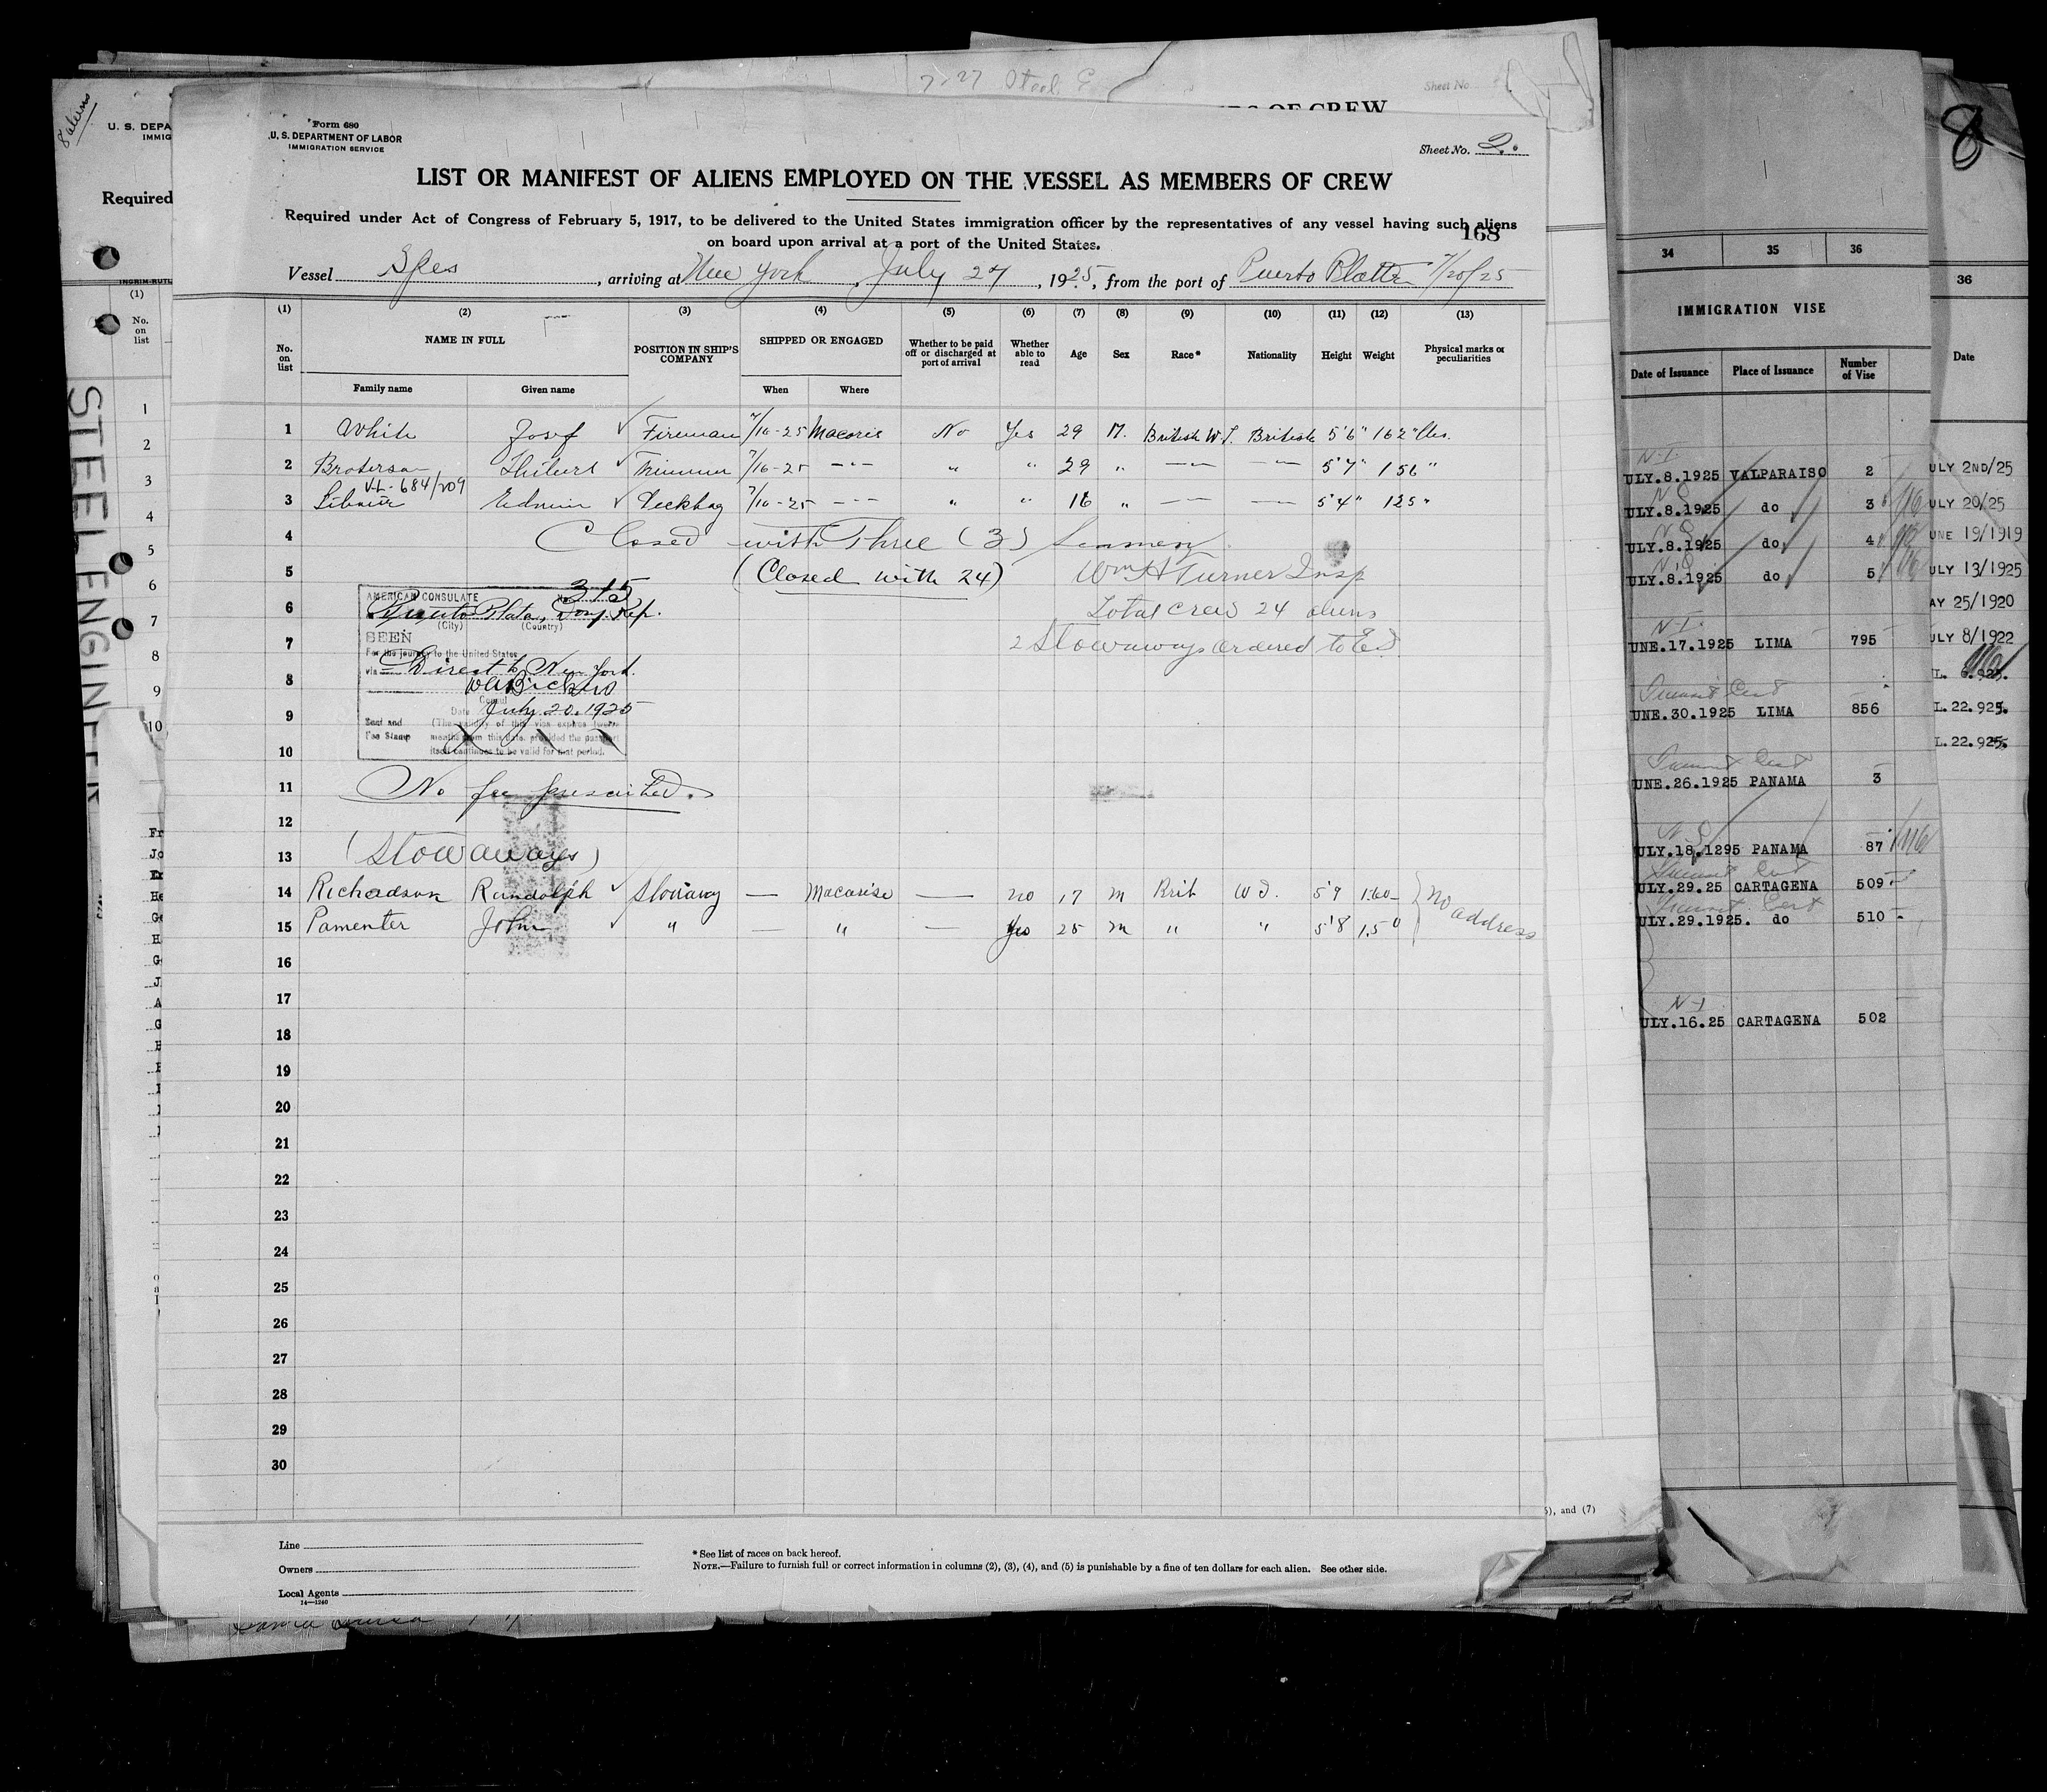 Form 680
U. S. DEPARTMENT OF LABOR
IMMIGRATION SERVICE
Sheet No. 2.
LIST OR MANIFEST OF ALIENS EMPLOYED ON THE VESSEL AS MEMBERS OF CREW
Required under Act of Congress of February 5, 1917, to be delivered to the United States immigration officer by the representatives of any vessel having such aliens
on board upon arrival at a port of the United States.
168
Vessel Spes, arriving at New York, July 27, 1925, from the port of Puerto Platta 7/20/25
(1) (2) (3) (4) (5) (6) (7) (8) (9) (10) (11) (12) (13)
No. on list NAME IN FULL POSITION IN SHIP'S COMPANY SHIPPED OR ENGAGED Whether to be paid off or discharged at port of arrival Whether able to read Age Sex Race* Nationality Height Weight Physical marks or peculiarities
Family name Given name When Where
1 White Josef Fireman 7/10-25 Macoris No Yes 29 M. British W.I. British 5'6" 162 lbs.
2 Trimmer 7/16-25 -"- " " 29 " -"- -"- 5'7" 156 "
VL-684/209
3 Edwin Deckboy 7/10-25 -"- " " 16 " -"- -"- 5'4" 125 "
4 Closed with Three (3) Seamen
5 (Closed with 24) Wm H Turner Insp
AMERICAN CONSULATE No. 315
6 Puerto Plata, Dom. Rep. Total crew 24 aliens
(City) (Country)
7 SEEN 2 Stowaways ordered to E.I.
For the journey to the United States
via Direct to New York.
8
Consul
9 Date July 20, 1925
Seal and Fee Stamp (The validity of this visa expires twelve months from this date, provided the passport itself continues to be valid for that period.
10
11 No fee prescribed.
12
13 (Stowaways)
14 Richardson Randolph Stowaway — Macorise — no 17 m Brit W I. 5'9 160- no address
15 Pamenter John " — " — Yes 25 m " " 5'8 150
16
17
18
19
20
21
22
23
24
25
26
27
28
29
30
Line
Owners
Local Agents
14—1240
* See list of races on back hereof.
NOTE.—Failure to furnish full or correct information in columns (2), (3), (4), and (5) is punishable by a fine of ten dollars for each alien. See other side.
8 aliens
U. S. DEPA
IMMIG
Required
(1)
No. on list
1
2
3
4
5
6
7
8
9
10
STEEL ENGINEER
Sheet No.
RS OF CREW
5), and (7)
34 35 36
IMMIGRATION VISE
Date of Issuance Place of Issuance Number of Vise
N-I.
ULY.8.1925 VALPARAISO 2
ULY.8.1925 do 3
ULY.8.1925 do 4
ULY.8.1925 do 5
N-I.
UNE.17.1925 LIMA 795
Transit Cert
UNE.30.1925 LIMA 856
Transit Cert
UNE.26.1925 PANAMA 3
ULY.18.1295 PANAMA 87
Transit Cert
ULY.29.25 CARTAGENA 509
Transit Cert
ULY.29.1925. do 510
N-I.
ULY.16.25 CARTAGENA 502
8
36
Date
ULY 2ND/25
ULY 20/25
UNE 19/1919
ULY 13/1925
AY 25/1920
ULY 8/1922
L. 22.925.
L. 22.925.